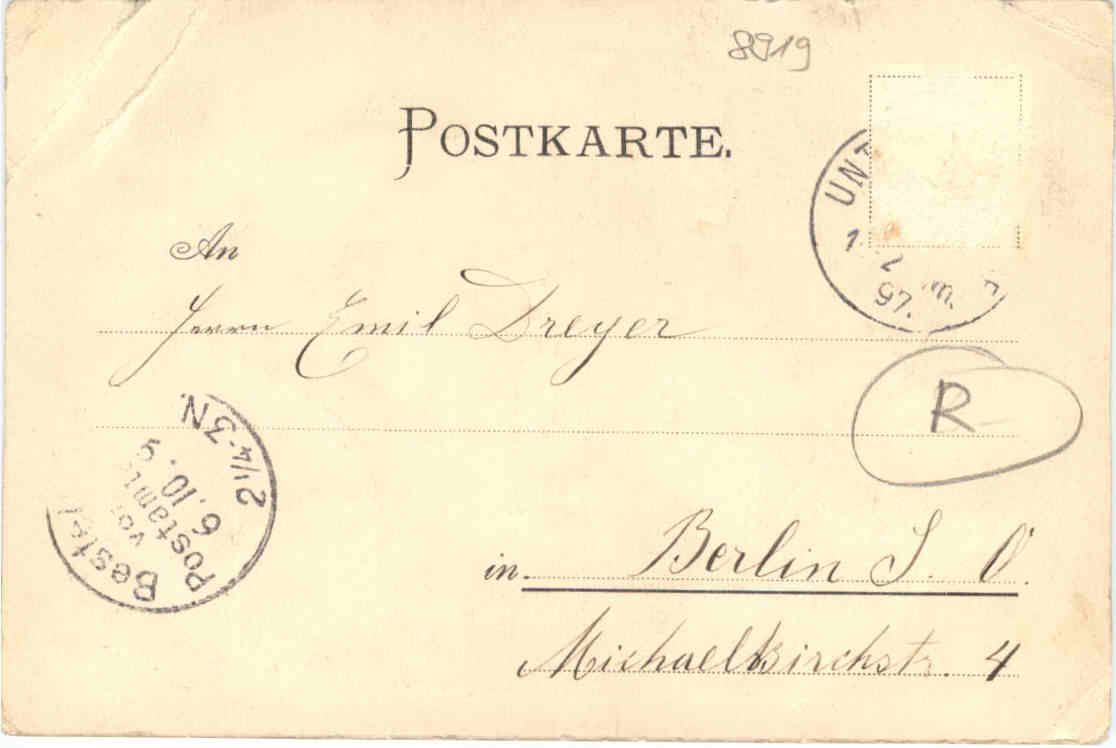 8919
POSTKARTE.
UNT
97.
An
Herrn Emil Dreyer
R
Bestel
vo
Postamt
6.10.9
2¼-3N.
in Berlin S. O.
Michaelkirchstr. 4